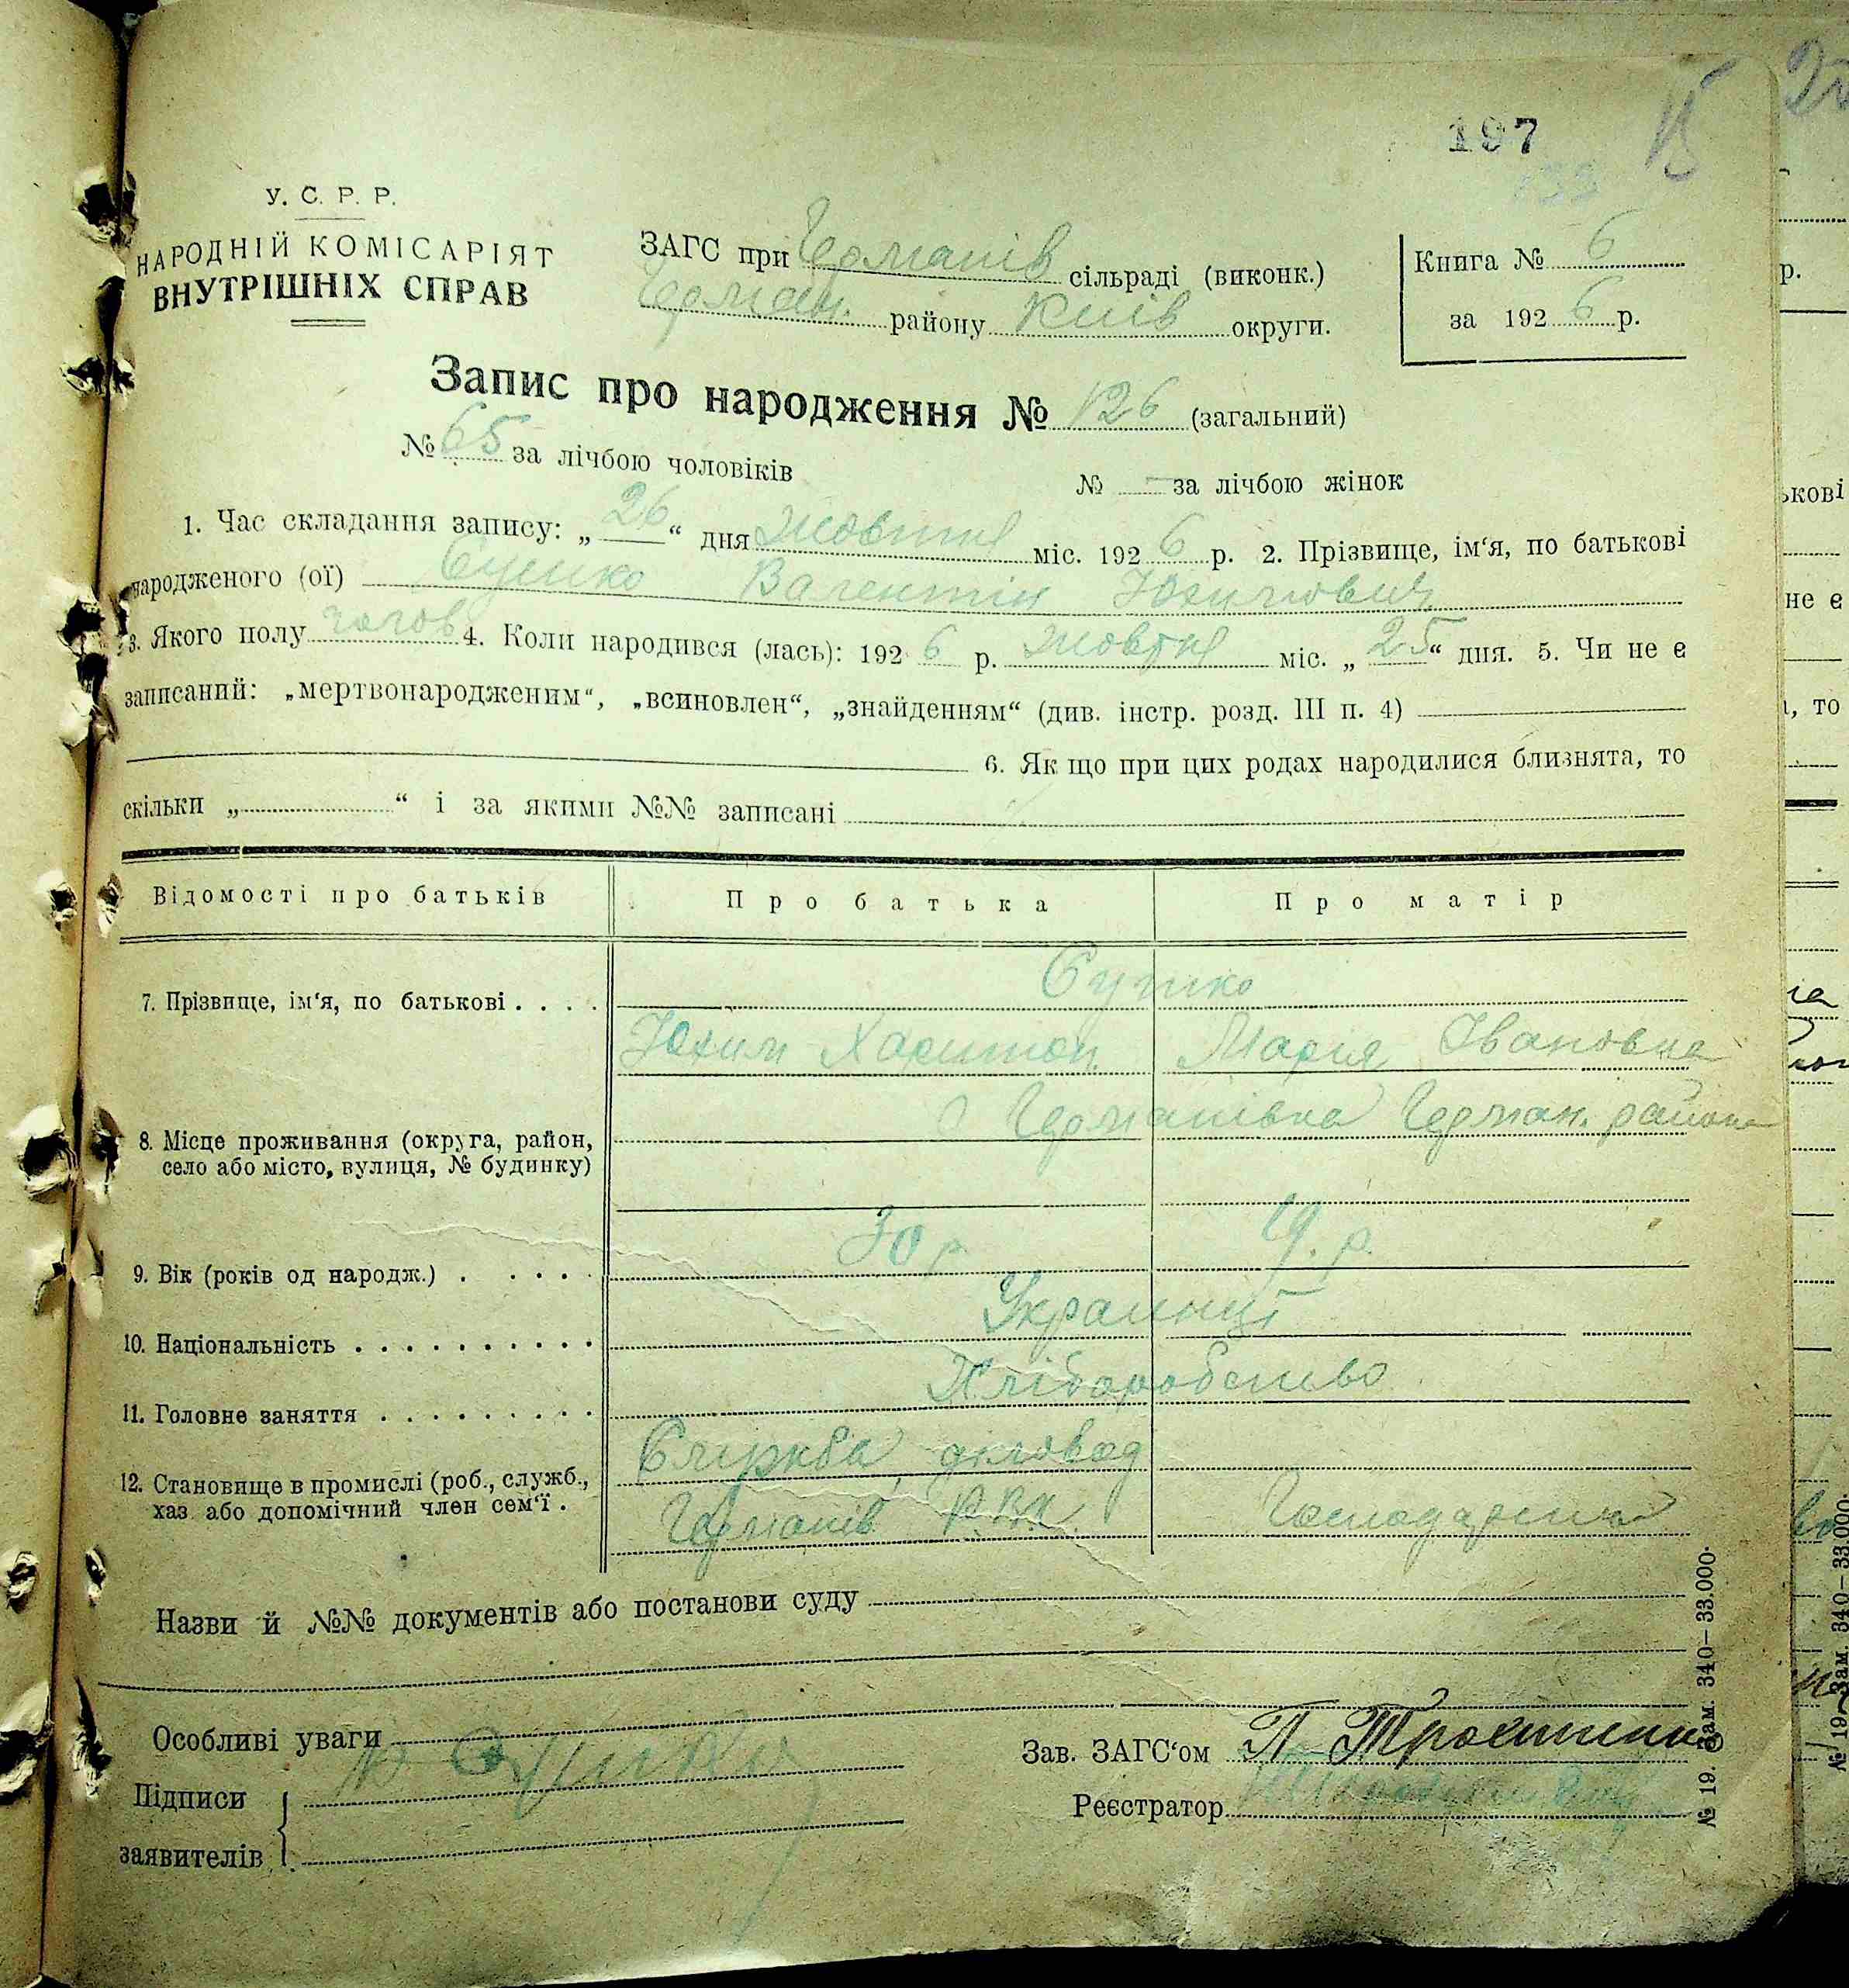 197
У. С. Р. Р.
НАРОДНІЙ КОМІСАРІЯТ
ВНУТРІШНІХ СПРАВ
ЗАГС при Германів сільраді (виконк.)
Герман. району Київ округи.
Книга № 6
за 1926 р.
Запис про народження № 126 (загальний)
№ 65 за лічбою чоловіків
№ — за лічбою жінок
1. Час складання запису: „26“ дня Жовтня міс. 1926 р. 2. Прізвище, ім‘я, по батькові
народженого (ої) Сушко Валентін Юхимович
3. Якого полу чолов 4. Коли народився (лась): 1926 р. Жовтня міс. „25“ дня. 5. Чи не є
записаний: „мертвонародженим“, „всиновлен“, „знайденням“ (див. інстр. розд. III п. 4)
6. Якщо при цих родах народилися близнята, то
скільки „ “ і за якими №№ записані
Відомості про батьків
Про батька
Про матір
7. Прізвище, ім‘я, по батькові . . . .
Сушко
Юхим Харитон. Мария Івановна
с Германівка Герман. района
8. Місце проживання (округа, район,
село або місто, вулиця, № будинку)
9. Вік (років од народж.) . . . . .
30 р 19. р.
10. Національність . . . . . . . . . .
Украинці
11. Головне заняття . . . . . . . . .
Хліборобство
12. Становище в промислі (роб., служб.,
хаз. або допомічний член сем‘ї .
Служба, діловод
Германів Р.В.К. Господарка
Назви й №№ документів або постанови суду
Особливі уваги
Підписи
заявителів
Сушко
Зав. ЗАГС‘ом П. Тро
Реєстратор
№ 19. Зам. 340–33.000.